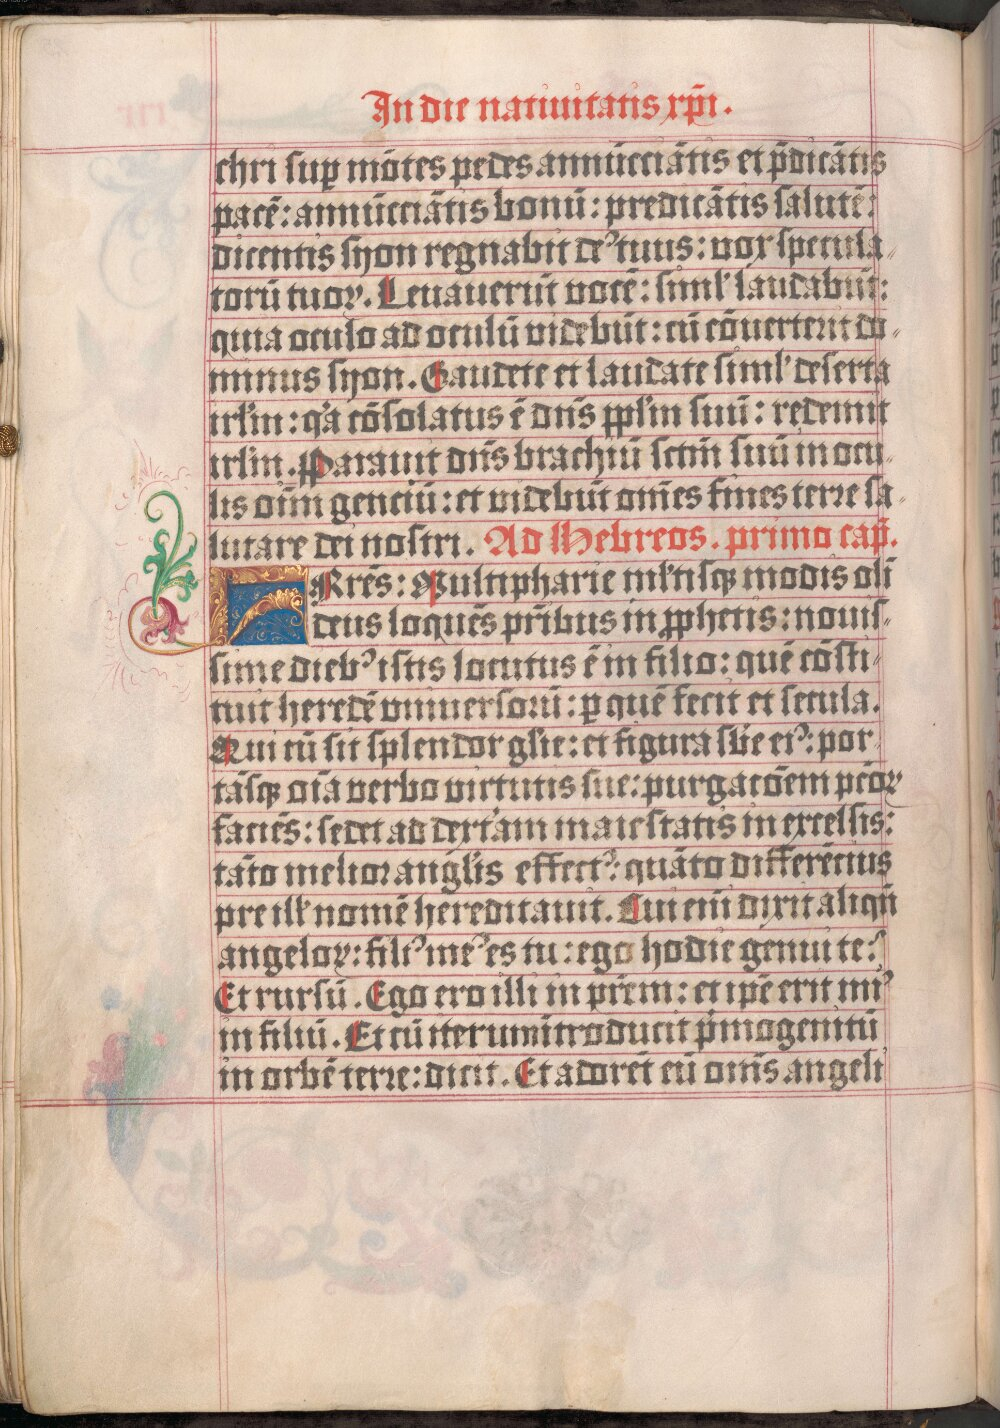 In die natiuitatis xp̄i.
chri suꝑ mōtes pedes annūcciātis et p̄dicātis
pacē: annūcciātis bonū: predicātis salutē:
dicentis syon regnabit deꝰ tuus: vox specula-
torū tuoꝝ. Leuauerūt vocē: siml' laudabūt:
quia oculo ad oculū videbūt: cū cōuerterit do-
minus syon. Gaudete et laudate siml' deserta
irl'm: q'a cōsolatus ē dn̄s ppl'm suū: redemit
irl'm. Parauit dn̄s brachiū sctm̄ suū in ocu-
lis oīm genciū: et videbūt om̄es fines terre sa-
lutare dei nostri. Ad Hebreos. primo cap̄.
FRrēs: Multipharie ml'tisqꝫ modis oli̅
deus loquēs pr̄ibus in ꝓphetis: nouis-
sime diebꝰ istis locutus ē in filio: quē cōsti-
tuit heredē vniuersorū: ꝑ quē fecit et secula.
Qui cū sit splendor gl'ie: et figura sb̄e eiꝰ: por-
tāsqꝫ oīa verbo virtutis sue: purgacōem pc̄oꝝ
faciēs: sedet ad dext'am maiestatis in excelsis:
tāto melior angl'is effectꝰ: quāto differēcius
pre ill' nomē hereditauit. Cui eni̅ dixit aliqn̄
angeloꝝ: filiꝰ meꝰ es tu: ego hodie genui te:
Et rursū. Ego ero illi in pr̄em: et ip̄e erit miꝰ
in filiū. Et cū iterum īntroducit p'mogenitū
in orbē terre: dicit. Et adorēt eū om̄s angeli